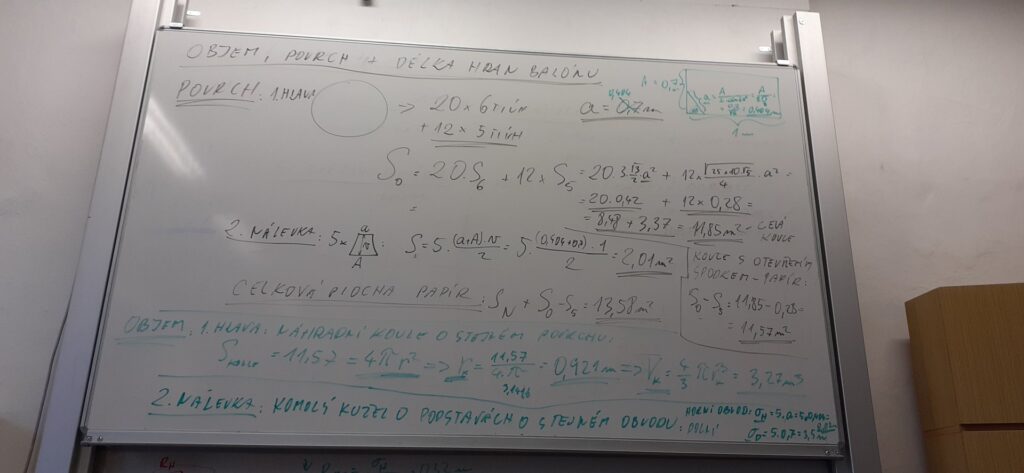 OBJEM, POVRCH + DÉLKA HRAN BALÓNU
POVRCH: 1. HLAVA
=> 20 x 6 TIÚH
+ 12 x 5 TIÚH
a = 0,7 m
0,404
A = 0,7
1 m
S₀ = 20.S₆ + 12 x S₅ = 20.3 √3/2 a² + 12 x √(25+10√5)/4 . a² =
= 20.0,42 + 12 x 0,28 =
= 8,48 + 3,37 = 11,85 m² - CELÁ KOULE
2. NÁLEVKA: 5 x
a
A
S = 5.(a+A).N/2 = 5.(0,404+0,7).1/2 = 2,01 m²
KOULE S OTEVŘENÍM
SPODKEM - PAPÍR:
S₀ - S₅ = 11,85 - 0,28 =
= 11,57 m²
CELKOVÁ PLOCHA PAPÍR: S_N + S₀ - S₅ = 13,58 m²
OBJEM: 1. HLAVA: NÁHRADNÍ KOULE O STEJNÉM POVRCHU:
S_KOULE = 11,57 = 4πr² => r_k = 11,57/4.π = 0,921 m => V_k = 4/3 πr_k³ = 3,27 m³
3,1416
2. NÁLEVKA: KOMOLÝ KUŽEL O PODSTAVÁCH O STEJNÉM OBVODU:
HORNÍ OBVOD: σ_H = 5.a =
DOLNÍ σ_D = 5.0,7 = 3,5 m